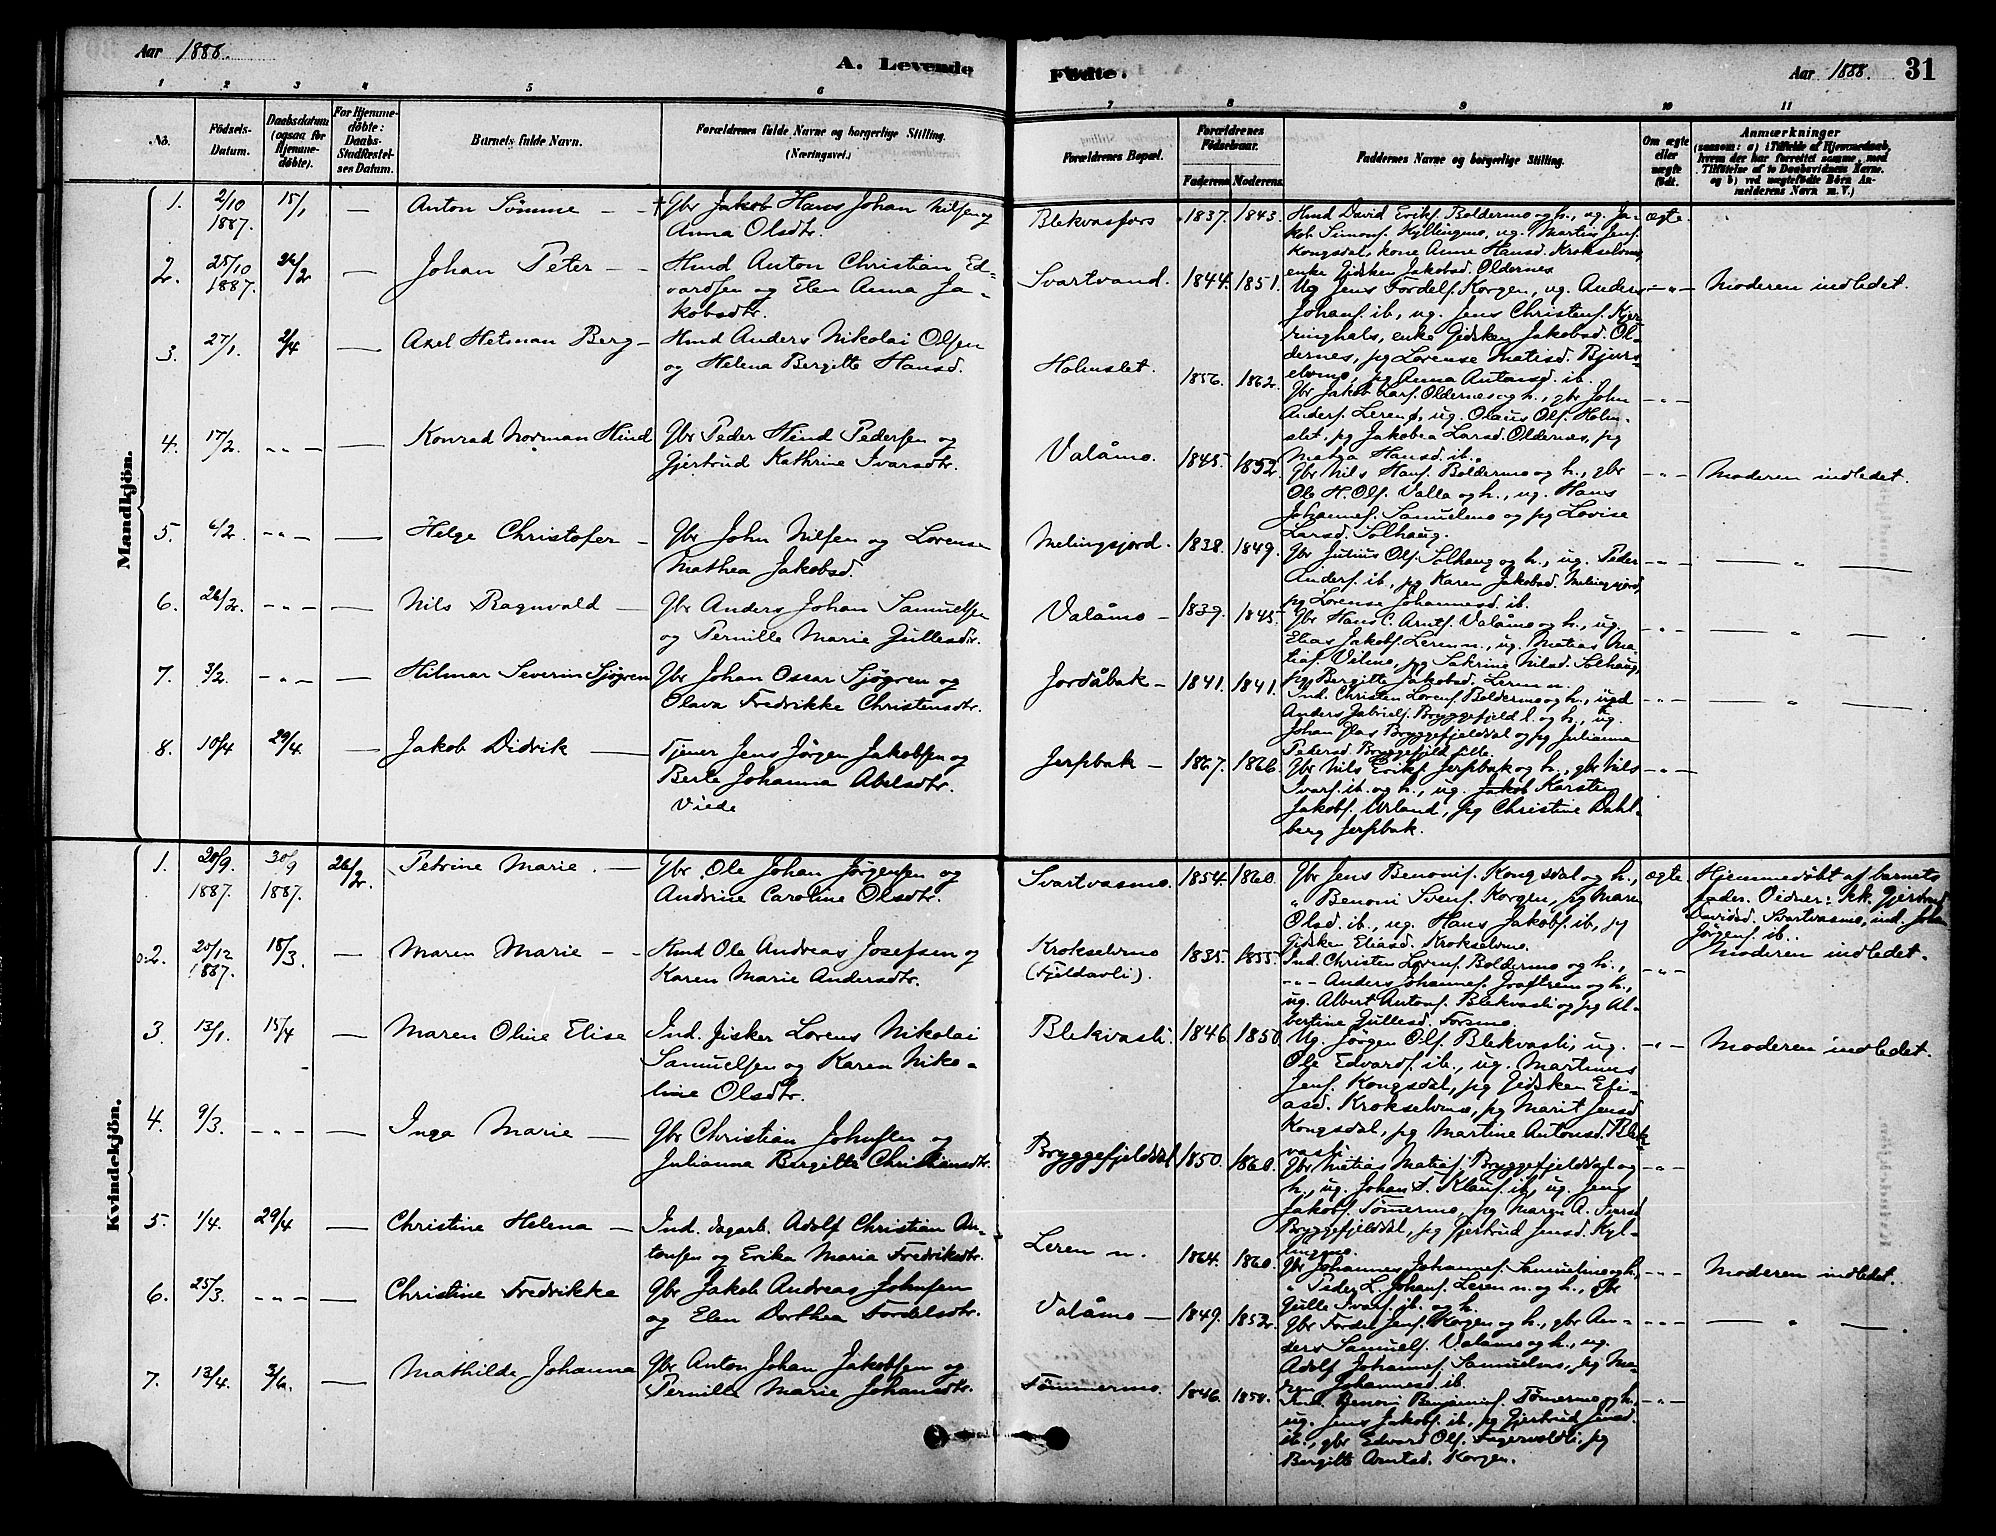 Aar 1888.
A. Levende Fødte.
Aar 1888. 31
1 2 3 4 5 6 7 8 9 10 11
No.
Fødsels-Datum.
Daabsdatum (ogsaa for Hjemmedøbte).
For Hjemmedøbte: Daabs-Stadfæstelses Datum.
Barnets fulde Navn.
Forældrenes fulde Navne og borgerlige Stilling. (Næringsvei.)
Forældrenes Bopæl.
Forældrenes Fødselsaar.
Faderens. Moderens.
Faddernes Navne og borgerlige Stilling.
Om ægte eller uægte født.
Anmærkninger
(saasom: a) i Tilfælde af Hjemmedaab, hvem der har forrettet samme, med Tilføielse af to Daabsvidners Navne, og b) ved uægtefødte Børn Anmelderens Navn m. V.)
Mandkjön.
1. 2/10 1887. 15/1 — Anton Sömme — Gbr Jakob Hans Johan Nilsen og
Anna Olsdtr.
Blekvasfors 1837. 1843. Hmd David Eriks. Boldermo og h., ug. Ja-
kob Simons. Kyllingmo, ug. Martin Jens.
Kongsdal, kone Anne Hansd. Krokselvmo,
enke Gidsken Jakobsd. Oldernes
ægte.
2. 25/10 1887. 26/2 — Johan Peter — Hmd Anton Christian Ed-
vardsen og Elen Anna Ja-
kobsdtr.
Svartvand. 1844. 1851. Ug Jens Fordels. Korgen, ug. Anders
Johans. ib., ug. Jens Christens. Kjer-
ringhals, enke Gidsken Jakobsd. Ol-
dernes, pg Lorense Matisd. Bjurs-
elvmo, pg Anna Antonsd. ib.
— „ — Moderen indledet.
3. 27/1. 2/4 — Axel Hetman Berg — Hmd Anders Nikolai Olsen
og Helena Bergitte Hansd.
Holmslet. 1856. 1862. Gbr Jakob Lars. Oldernes og h., gbr John
Anders. Leren ø, ug. Olaus Ols. Holm-
slet, pg Jakobea Larsd. Oldernes, pg
Hansd. ib.
— „ —
4. 17/2. — „ — — Konrad Norman Hind Gbr Peder Hind Pedersen og
Gjertrud Kathrine Ivarsdtr.
Valåmo. 1845. 1852. Gbr Nils Hans. Boldermo og h., gbr
Ole H. Ols. Valla og h., ug. Hans
Johannes. Samuelmo og pg Lovise
Larsd. Solhaug.
— „ — Moderen indledet.
5. 6/2. — „ — Helge Christofer — Gbr John Nilsen og Lorense
Mathea Jakobsd.
Melingsjord. 1838. 1849. Gbr Julius Ols. Solhaug og h., ug. Peder
Anders. ib., pg Karen Jakobsd. Melingsjord,
pg Lorense Johannesd. ib.
— „ — — „ —
6. 26/2. — „ — — Nils Ragnvald — Gbr Anders Johan Samuelsen
og Pernille Marie Gullesdtr.
Valåmo — 1839. 1845. Gbr Hans C. Arnts. Valåmo og h., ug.
Elias Jakobs. Leren n., ug. Matias Ma-
tias. Vilmo, pg Sakrine Nilsd. Solhaug,
pg Bergitte Jakobsd. Leren n.
— „ — — „ —
7. 3/2. — „ — — Hilmar Severin Sjøgren Gbr Johan Ossar Sjøgren og
Olava Fredrikke Christensdtr.
Jordåbak — 1841. 1841. Ind. Christen Lorens. Boldermo og h., ug
Anders Gabriels. Bryggefjeld l. og h., ug.
Johan Bryggefjelddal og pg Julianna
Petersd. Bryggefjeld lille.
— „ — — „ —
8. 10/4 29/4. — Jakob Didrik — Tjener Jens Jørgen Jakobsen og
Berte Johanna Abelsdtr.
Viede
Jerpbak — 1867. 1866. Gbr Nils Eriks. Jerpbak og h., gbr Nils
Ivars. ib. og h., ug. Jakob Karsten
Jakobs. Urland, pg Christine Dahl-
berg Jerpbak.
— „ —
Kvindekjön.
1. 20/9. 1887. 30/9 1887. 26/2. Petrine Marie. — Gbr Ole Johan Jørgensen og
Andrine Caroline Olsdtr.
Svartvasmo. 1854. 1860. Gbr Jens Benonis. Kongsdal og h.,
„ Benoni Svens. Korgen, pg Maren
Olsd. ib., ug. Hans Jakobs. ib., pg
Gidsken Eliasd. Krokselvmo.
ægte. Hjemmedöbt af barnets
fader. Vidner: kk. Gjertrud
Davidsd. Svartvasmo, ind. Johan
Jörgens. ib..
2. 20/12 1887. 18/3. — Maren Marie — Kmd Ole Andreas Josefsen og
Karen Marie Andersdtr.
Krokselvmo
(Fjeldavli).
1835. 1855. Ind. Christen Lorens. Boldermo og h.,
— „ — Anders Johannes. og h.,
ug. Albert Antons. Blekvasli og pg Al-
bertine Gullesd. Forsmo.
— „ — Moderen indledet.
3. 13/1. 15/4 — Maren Oline Elise Ind. fisker Lorens Nikolai
Samuelsen og Karen Niko-
line Olsdtr.
Blekvasli. 1846. 1850 Ug. Jørgen Ols. Blekvasli, ug.
Ole Edvards. ib., ug. Martinus
Jens. Kongsdal, pg Gidsken Eli-
asd. Krokselvmo, pg Marit Jensd
Kongsdal, pg Martine Antonsd. Blek-
vasli.
— „ — Moderen indledet.
4. 9/3. — „ — — Inga Marie — Gbr Christian Johnsen og
Julianna Bergitta Christiansdtr.
Bryggefjelddal 1850. 1860. Gbr Matias Matias. Bryggefjelddal og
h., ug. Johan S. Klaus. ib., ug. Jens
Jakobs. Tømermo, pg Maren A. Ivarsd
Bryggefjelddal, pg Gjertrud Jensd. Kyl-
lingmo.
— „ —
5. 1/4. 29/4 — Christine Helena — Ind. dagarb. Adolf Christian An-
tonsen og Erika Maria Fredriksdtr.
Leren n. 1864. 1860. Gbr Johannes Johannes. Samuelmo og h,
„ Peder L. Johans. Leren n. og h., gbr
Gulle Ivars. ib. og h.
— „ — Moderen indledet.
6. 25/3. — „ — — Christine Fredrikke Gbr Jakob Andreas Johnsen
og Elen Dorthea Fordelsdtr.
Valåmo — 1849. 1852. Gbr Fordel Jens. Korgen og h., gbr An-
ders Samuels. Valåmo og h., ug.
Adolf Johannes. Samuelmo, pg Ma-
ren Johannesd. ib.
— „ — — „ —
7. 13/4. 3/6. — Mathilde Johanna Gbr Anton Johan Jakobsen og
Pernilla Marie Johansdtr.
Tömmermo. 1846. 1850. Ind. Benoni Benjamins. Tømermo og h.
ug. Jens Jakobs. ib., pg Gjertrud Jensd.
ib., gbr Edvard Ols. Fagervoldli, pg
Bergitte Arntsd. Korgen.
— „ —